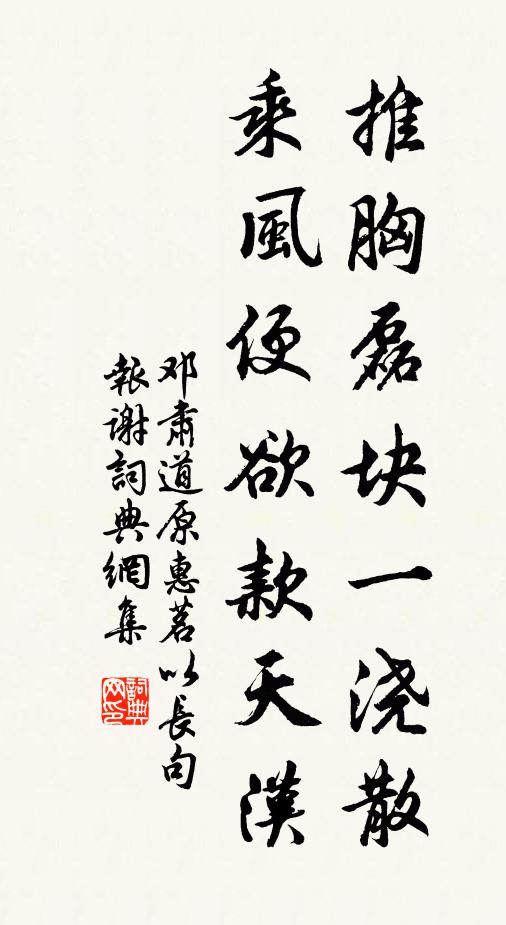 推胸磊块一浇散
乘風便欲款天漢
邓肅道原惠茗以長句
報谢詞典網集
詞典网印